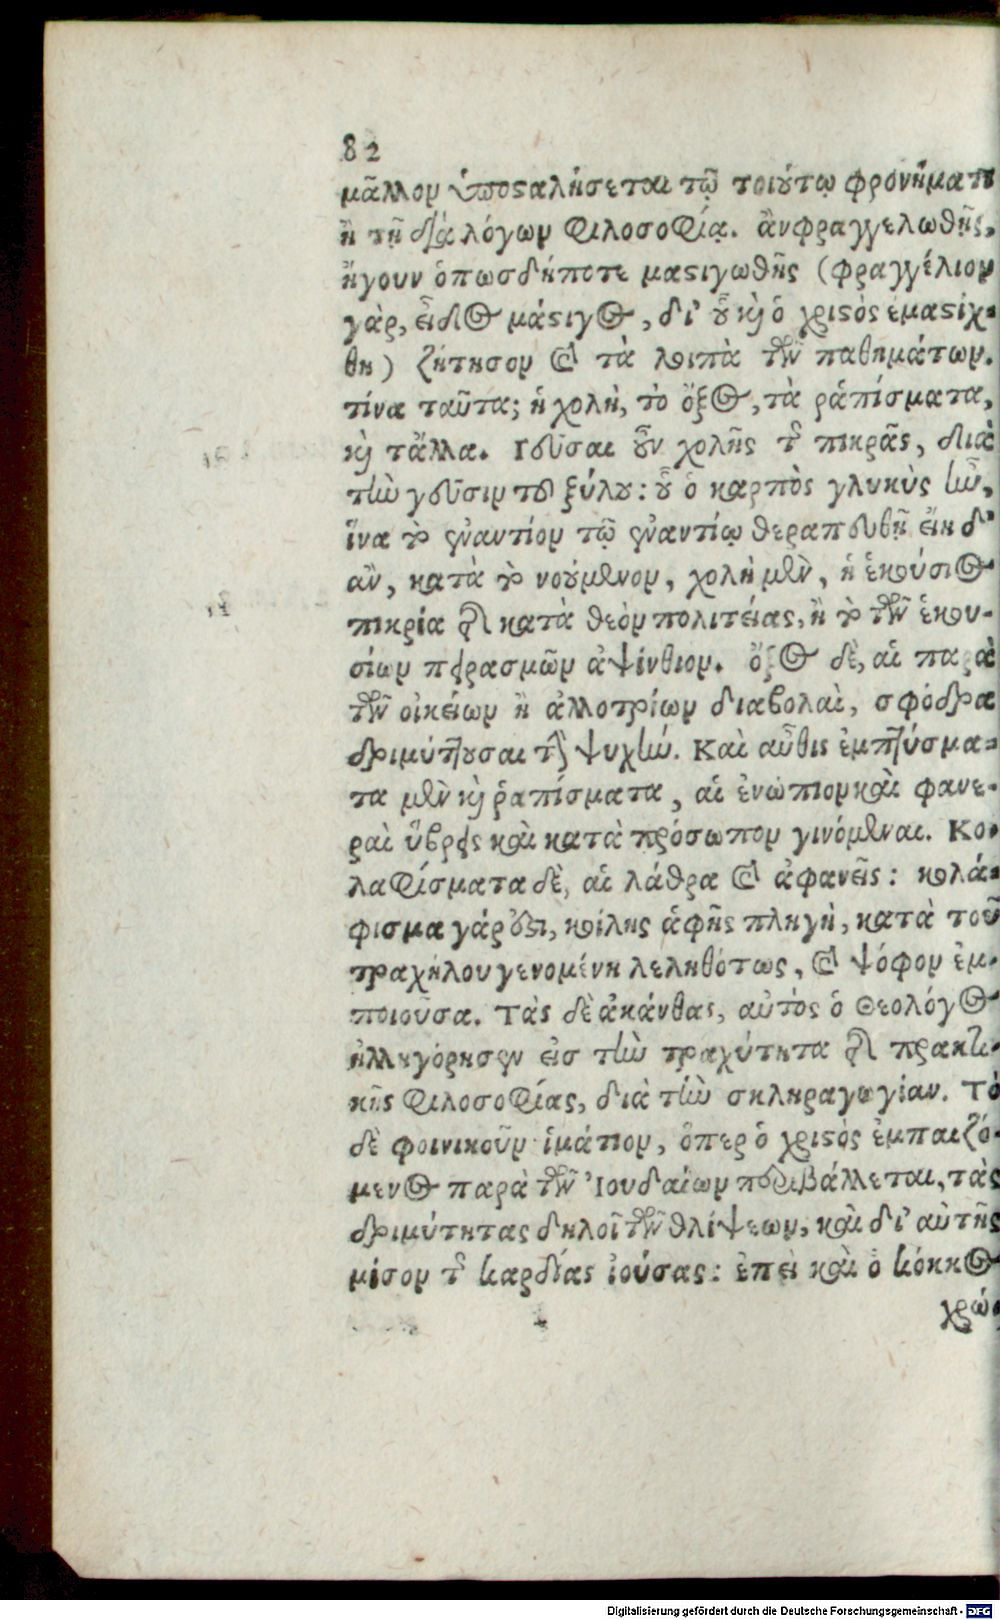 82
μᾶλλον ὑποσταλήσεται τῷ τοιούτῳ φρονήματι
ἢ τῇ διὰ λόγων φιλοσοφίᾳ. ἂν φραγγελωθῇς,
ἤγουν ὁπωσδήποτε μαστιγωθῇς (φραγγέλιον
γὰρ, εἶδος μάστιγος, δι' οὗ καὶ ὁ χριστὸς ἐμαστίχ-
θη) ζήτησον καὶ τὰ λοιπὰ τῶν παθημάτων.
τίνα ταῦτα; ἡ χολὴ, τὸ ὄξος, τὰ ῥαπίσματα,
καὶ τἄλλα. Γεῦσαι οὖν χολῆς τῆς πικρᾶς, διὰ
τὴν γεῦσιν τοῦ ξύλου: οὗ ὁ καρπὸς γλυκὺς ἦν,
ἵνα τὸ ἐναντίον τῷ ἐναντίῳ θεραπευθῇ εἴη δ'
ἂν, κατὰ τὸ νούμενον, χολὴ μὲν, ἡ ἑκούσιος
πικρία τῆς κατὰ θεὸν πολιτείας, ἢ τὸ τῶν ἑκου-
σίων πειρασμῶν ἀψίνθιον. ὄξος δὲ, αἱ παρὰ
τῶν οἰκείων ἢ ἀλλοτρίων διαβολαὶ, σφόδρα
δριμύττουσαι τὴν ψυχήν. Καὶ αὖθις ἐμπτύσμα-
τα μὲν καὶ ῥαπίσματα, αἱ ἐνώπιον καὶ φανε-
ραὶ ὕβρεις καὶ κατὰ πρόσωπον γινόμεναι. Κο-
λαφίσματα δὲ, αἱ λάθρα καὶ ἀφανεῖς: κολά-
φισμα γάρ ἐστι, κοίλης ἁφῆς πληγὴ, κατὰ τοῦ
τραχήλου γενομένη λεληθότως, καὶ ψόφον ἐμ-
ποιοῦσα. Τὰς δὲ ἀκάνθας, αὐτὸς ὁ Θεολόγος
ἠλληγόρησεν εἰσ τὴν τραχύτητα τῆς πρακτι-
κῆς φιλοσοφίας, διὰ τὴν σκληραγωγίαν. Τὸ
δὲ φοινικοῦν ἱμάτιον, ὅπερ ὁ χριστὸς ἐμπαιζό-
μενος παρὰ τῶν Ἰουδαίων περιβάλλεται, τὰς
δριμύτητας δηλοῖ τῶν θλίψεων, καὶ δι' αὐτῆς
μέσον τῆς καρδίας ἰούσας: ἐπεὶ καὶ ὁ κόκκος
χρώ-
Digitalisierung gefördert durch die Deutsche Forschungsgemeinschaft - DFG